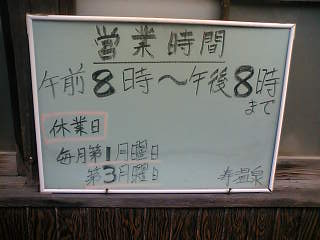 営業時間
午前8時～午後8時
まで
休業日
毎月第1月曜日
第3月曜日
寿温泉